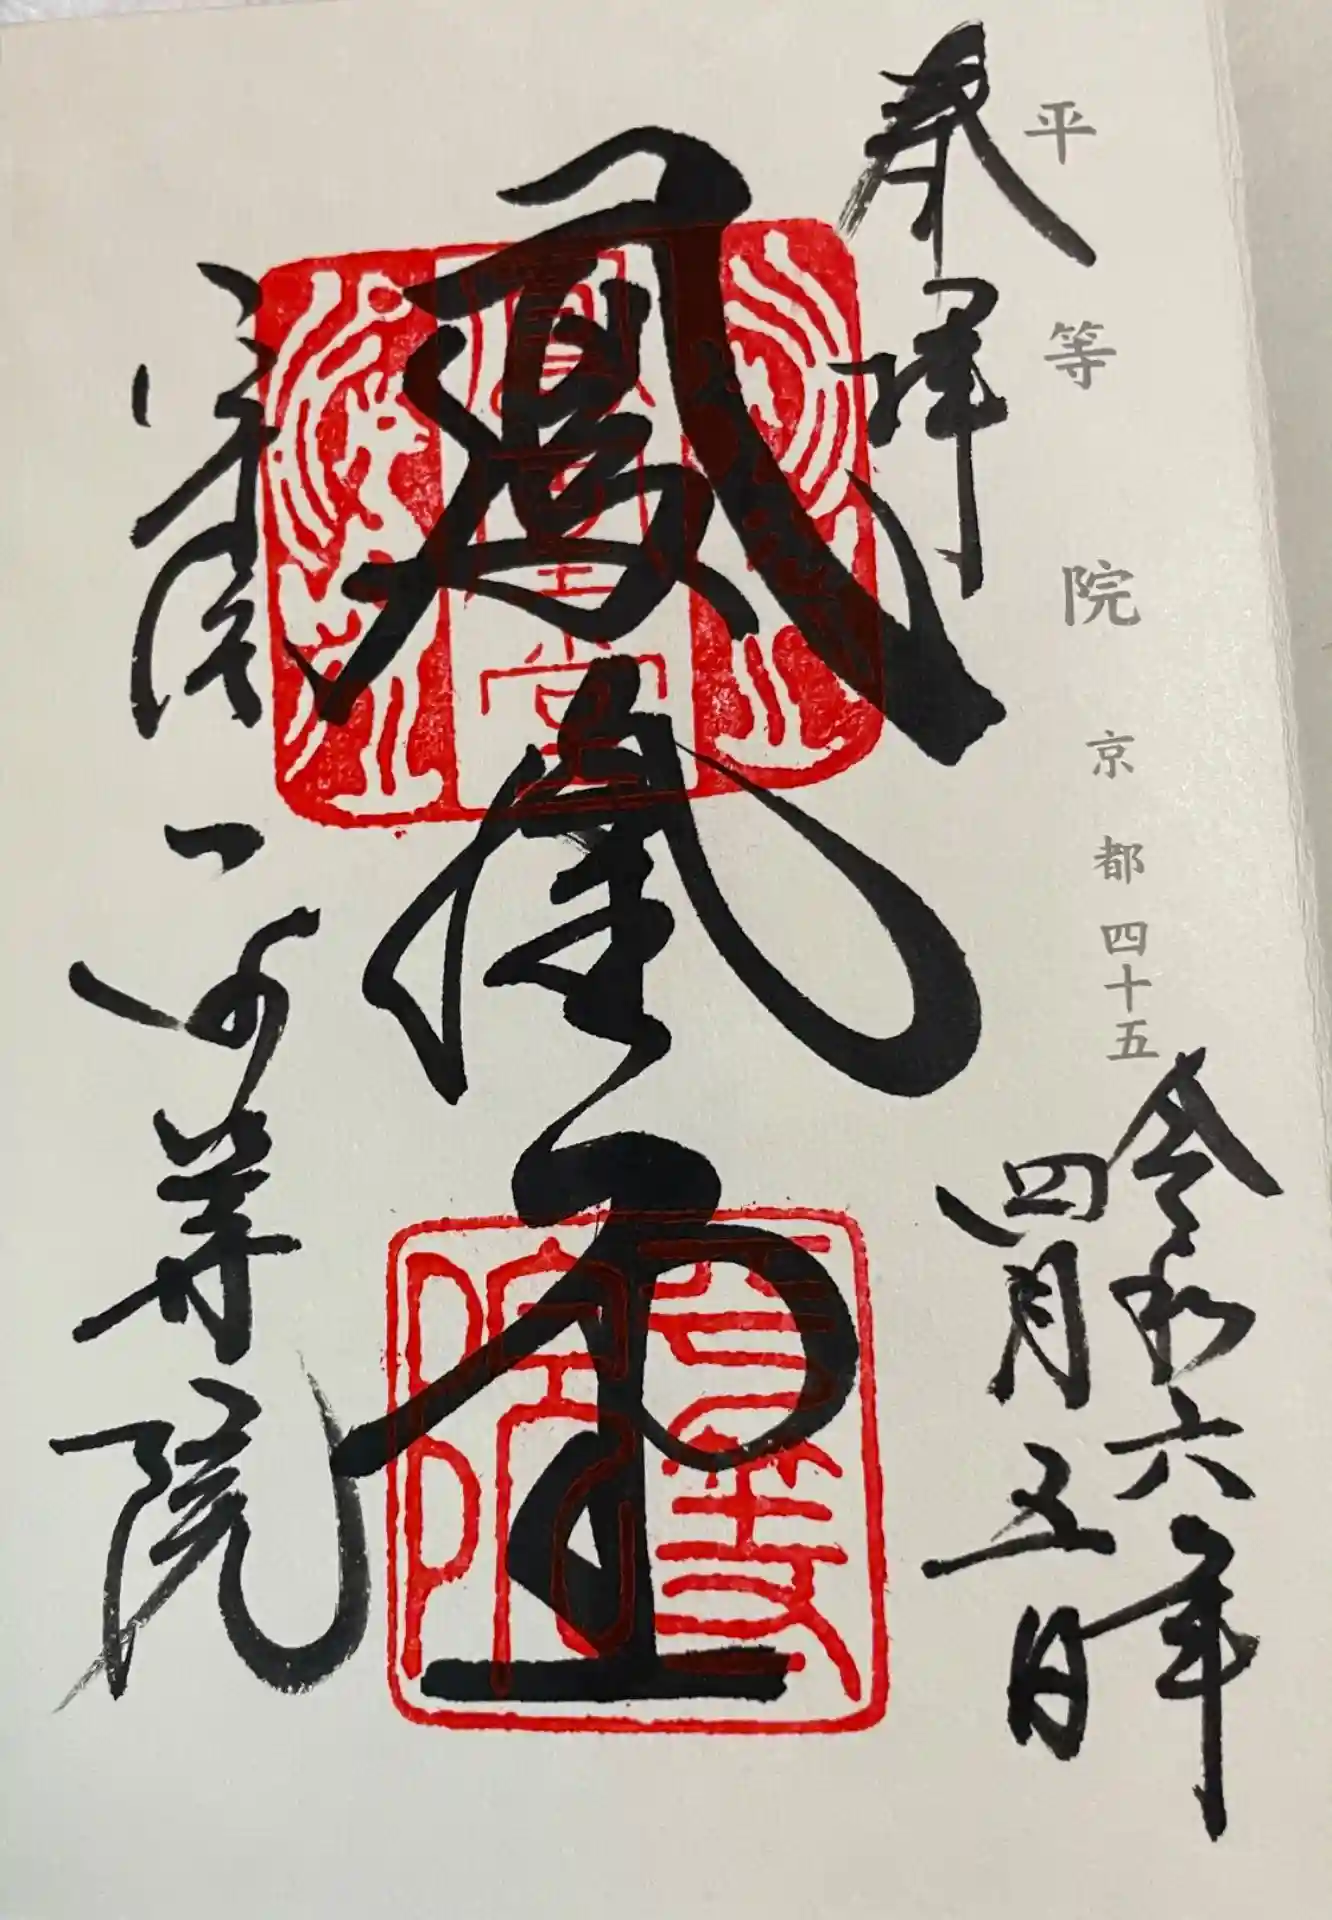 平等院 京都 四十五
奉拝
令和六年
四月五日
鳳凰堂
鳳凰堂
平等院
宇治
平等院